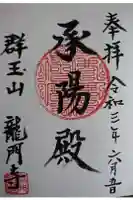 奉拝 令和三年六月吉日
承陽殿
群玉山 龍門寺